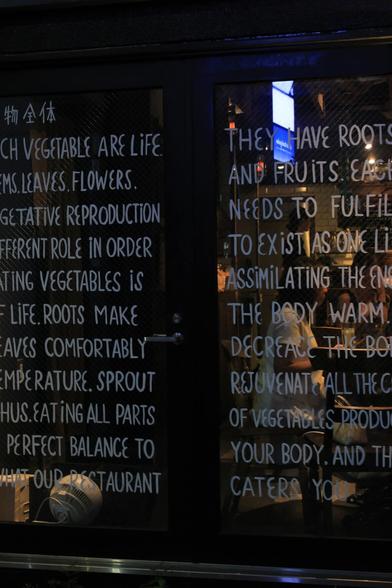 物全体
CH VEGETABLE ARE LIFE. THEY HAVE ROOTS
EMS, LEAVES, FLOWERS, AND FRUITS. EACH
GETATIVE REPRODUCTION NEEDS TO FULFIL
FFERENT ROLE IN ORDER TO EXIST AS ONE LI
ATING VEGETABLES IS ASSIMILATING THE EN
F LIFE. ROOTS MAKE THE BODY WARM
EAVES COMFORTABLY DECREACE THE BO
EMPERATURE. SPROUT REJUVENATE ALL THE C
HUS, EATING ALL PARTS OF VEGETABLES PRODU
PERFECT BALANCE TO YOUR BODY, AND TH
WHAT OUR RESTAURANT CATERS YOU